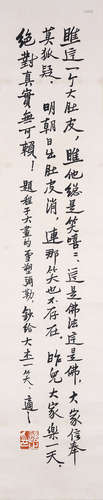 瞧這一个大肚皮，瞧他總是笑嘻嘻；這是佛法這是佛，大家信奉
莫狐疑。明朝日出肚皮消，連那笑也不存在。昨兒大家樂一天，
絕對真實無可賴！題程子大畫的雪塑彌勒，鈔給大杰一笑。適